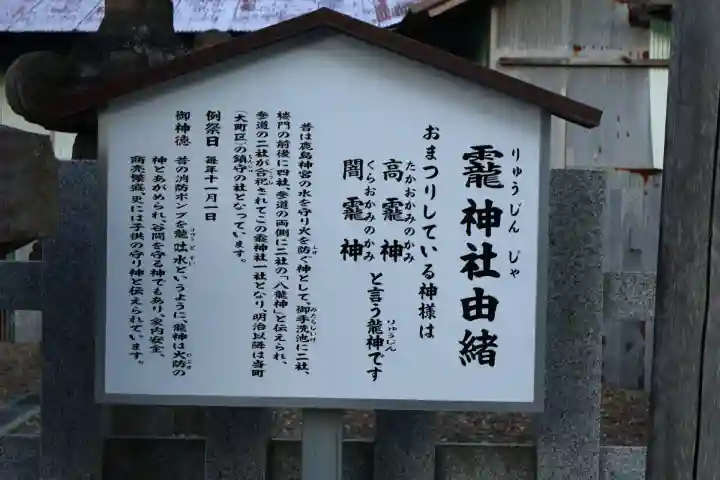 りゅうじんじゃ
靇神社由緒
おまつりしている神様は
たかおかみのかみ
高靇神
くらおかみのかみ
闇靇神
りゅうじん
と言う龍神です
昔は鹿島神宮の水を守り火を防ぐ神として、御手洗池に二社、
楼門の前後に四社、参道の両側に二社の「八龍神」と伝えられ、
参道の二社が合祀されてこの靇神社一社となり、明治以降は当町
(大町区)の鎮守の社となっています。
例祭日 毎年十一月一日
御神徳 昔の消防ポンプを龍吐水というように、龍神は火防の
神とあがめられ、谷間を守る神でもあり、家内安全、
商売繁盛、更には子供の守り神と伝えられています。